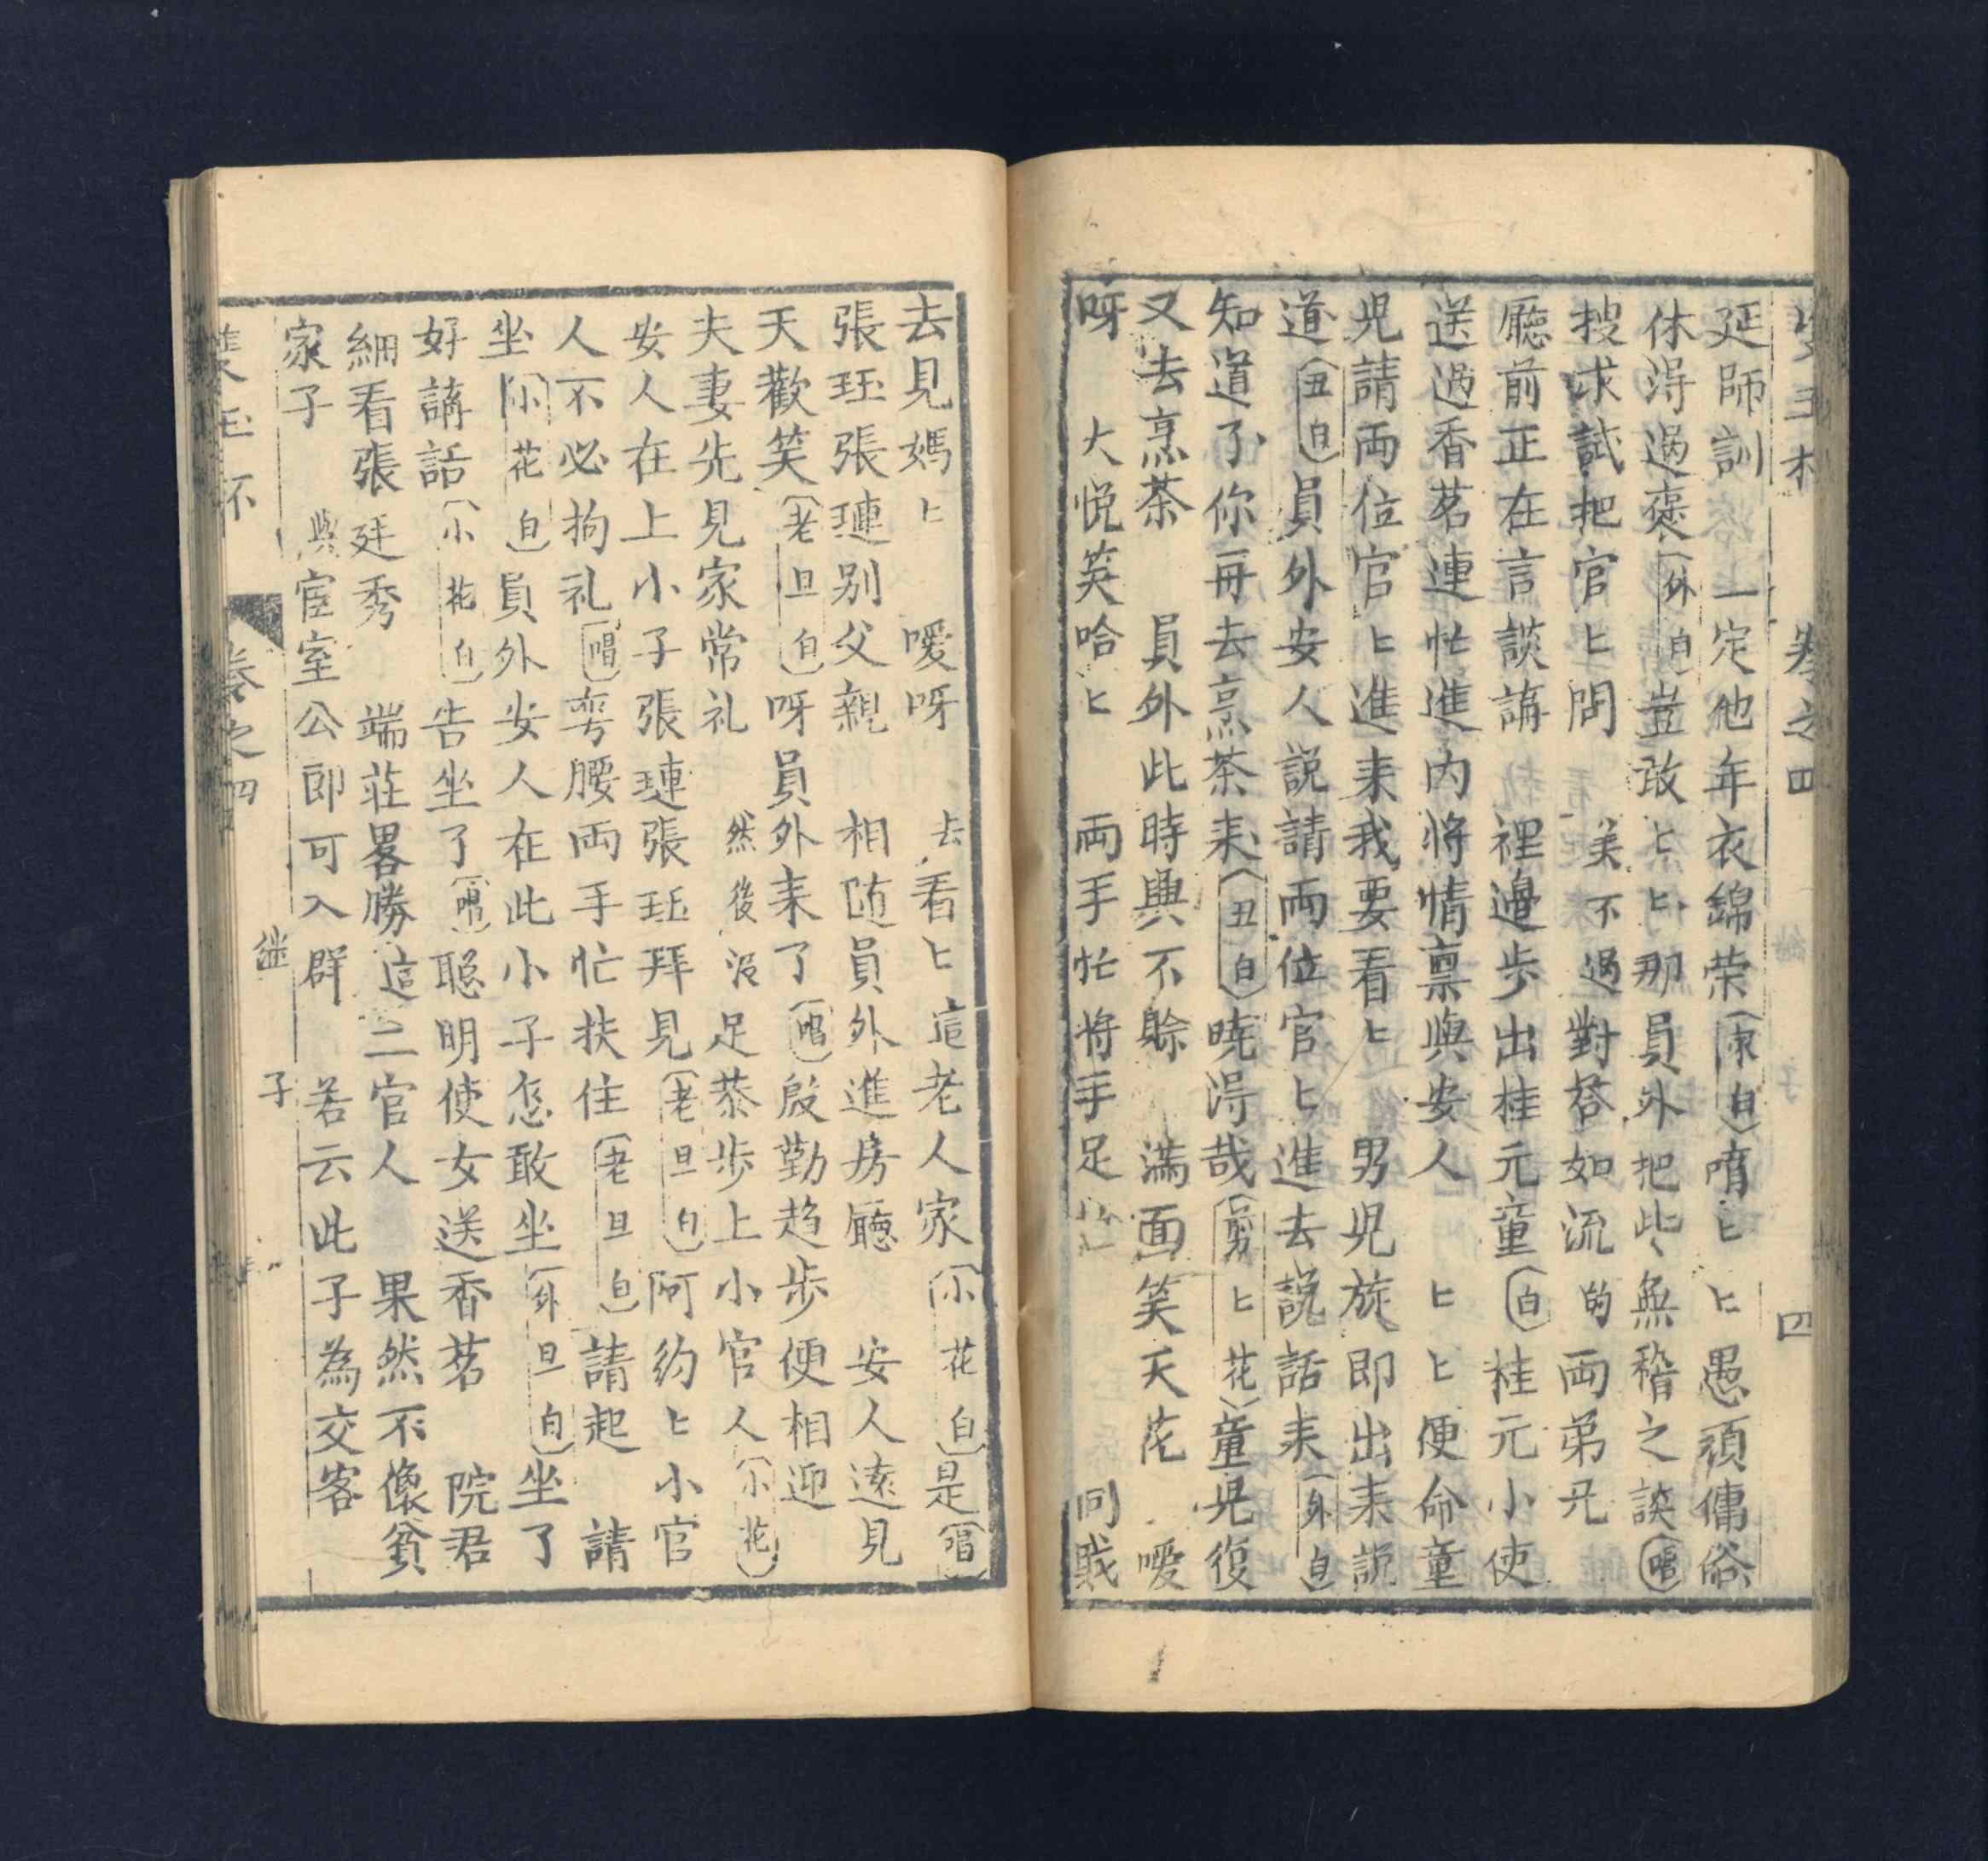 卷之四 四
延師訓 一定他年衣錦荣（末白）唷匕 匕愚頑傭俗
休淂過褒（外白）豈敢匕 匕那員外把此無稽之談（唱）
搜求試把官匕問 美不過對荅如流的両弟兄
廳前正在言談講 裡邉步出桂元童（白）桂元小使
送過香茗連忙進内将情禀與安人 匕匕便命童
児請両位官匕進来我要看匕 男児旋即出来説
道（丑白）員外安人説請両位官匕進去説話来（外白）
知道了你再去烹茶来（丑白）暁淂哉 匕花）童児復
又去烹茶 員外此時興不賒 满面笑天花 嗳
呀 大悦笑哈匕 両手忙将手足 同戝
去見媽匕 嗳呀 去看匕這老人家（小花白）是（唱）
張珏張璉别父親 相随員外進房廳 安人遠見
天歡笑（老旦白）呀員外来了（唱）殷勤趋步便相迎
夫妻先見家常礼 然後没足恭步上小官人（小花）
安人在上小子張璉張珏拜見（老旦白）阿约匕小官
人不必拘礼（唱）弯腰両手忙扶住（老旦白）請起 請
坐（小花白）員外安人在此小子怎敢坐（外旦白）坐了
好講話（小花白）告坐了（唱）聰明使女送香茗 院君
細看張廷秀 端莊畧勝這二官人 果然不像貧
家子 與宦室公郎可入群 若云此子為交客
卷之四 继 子